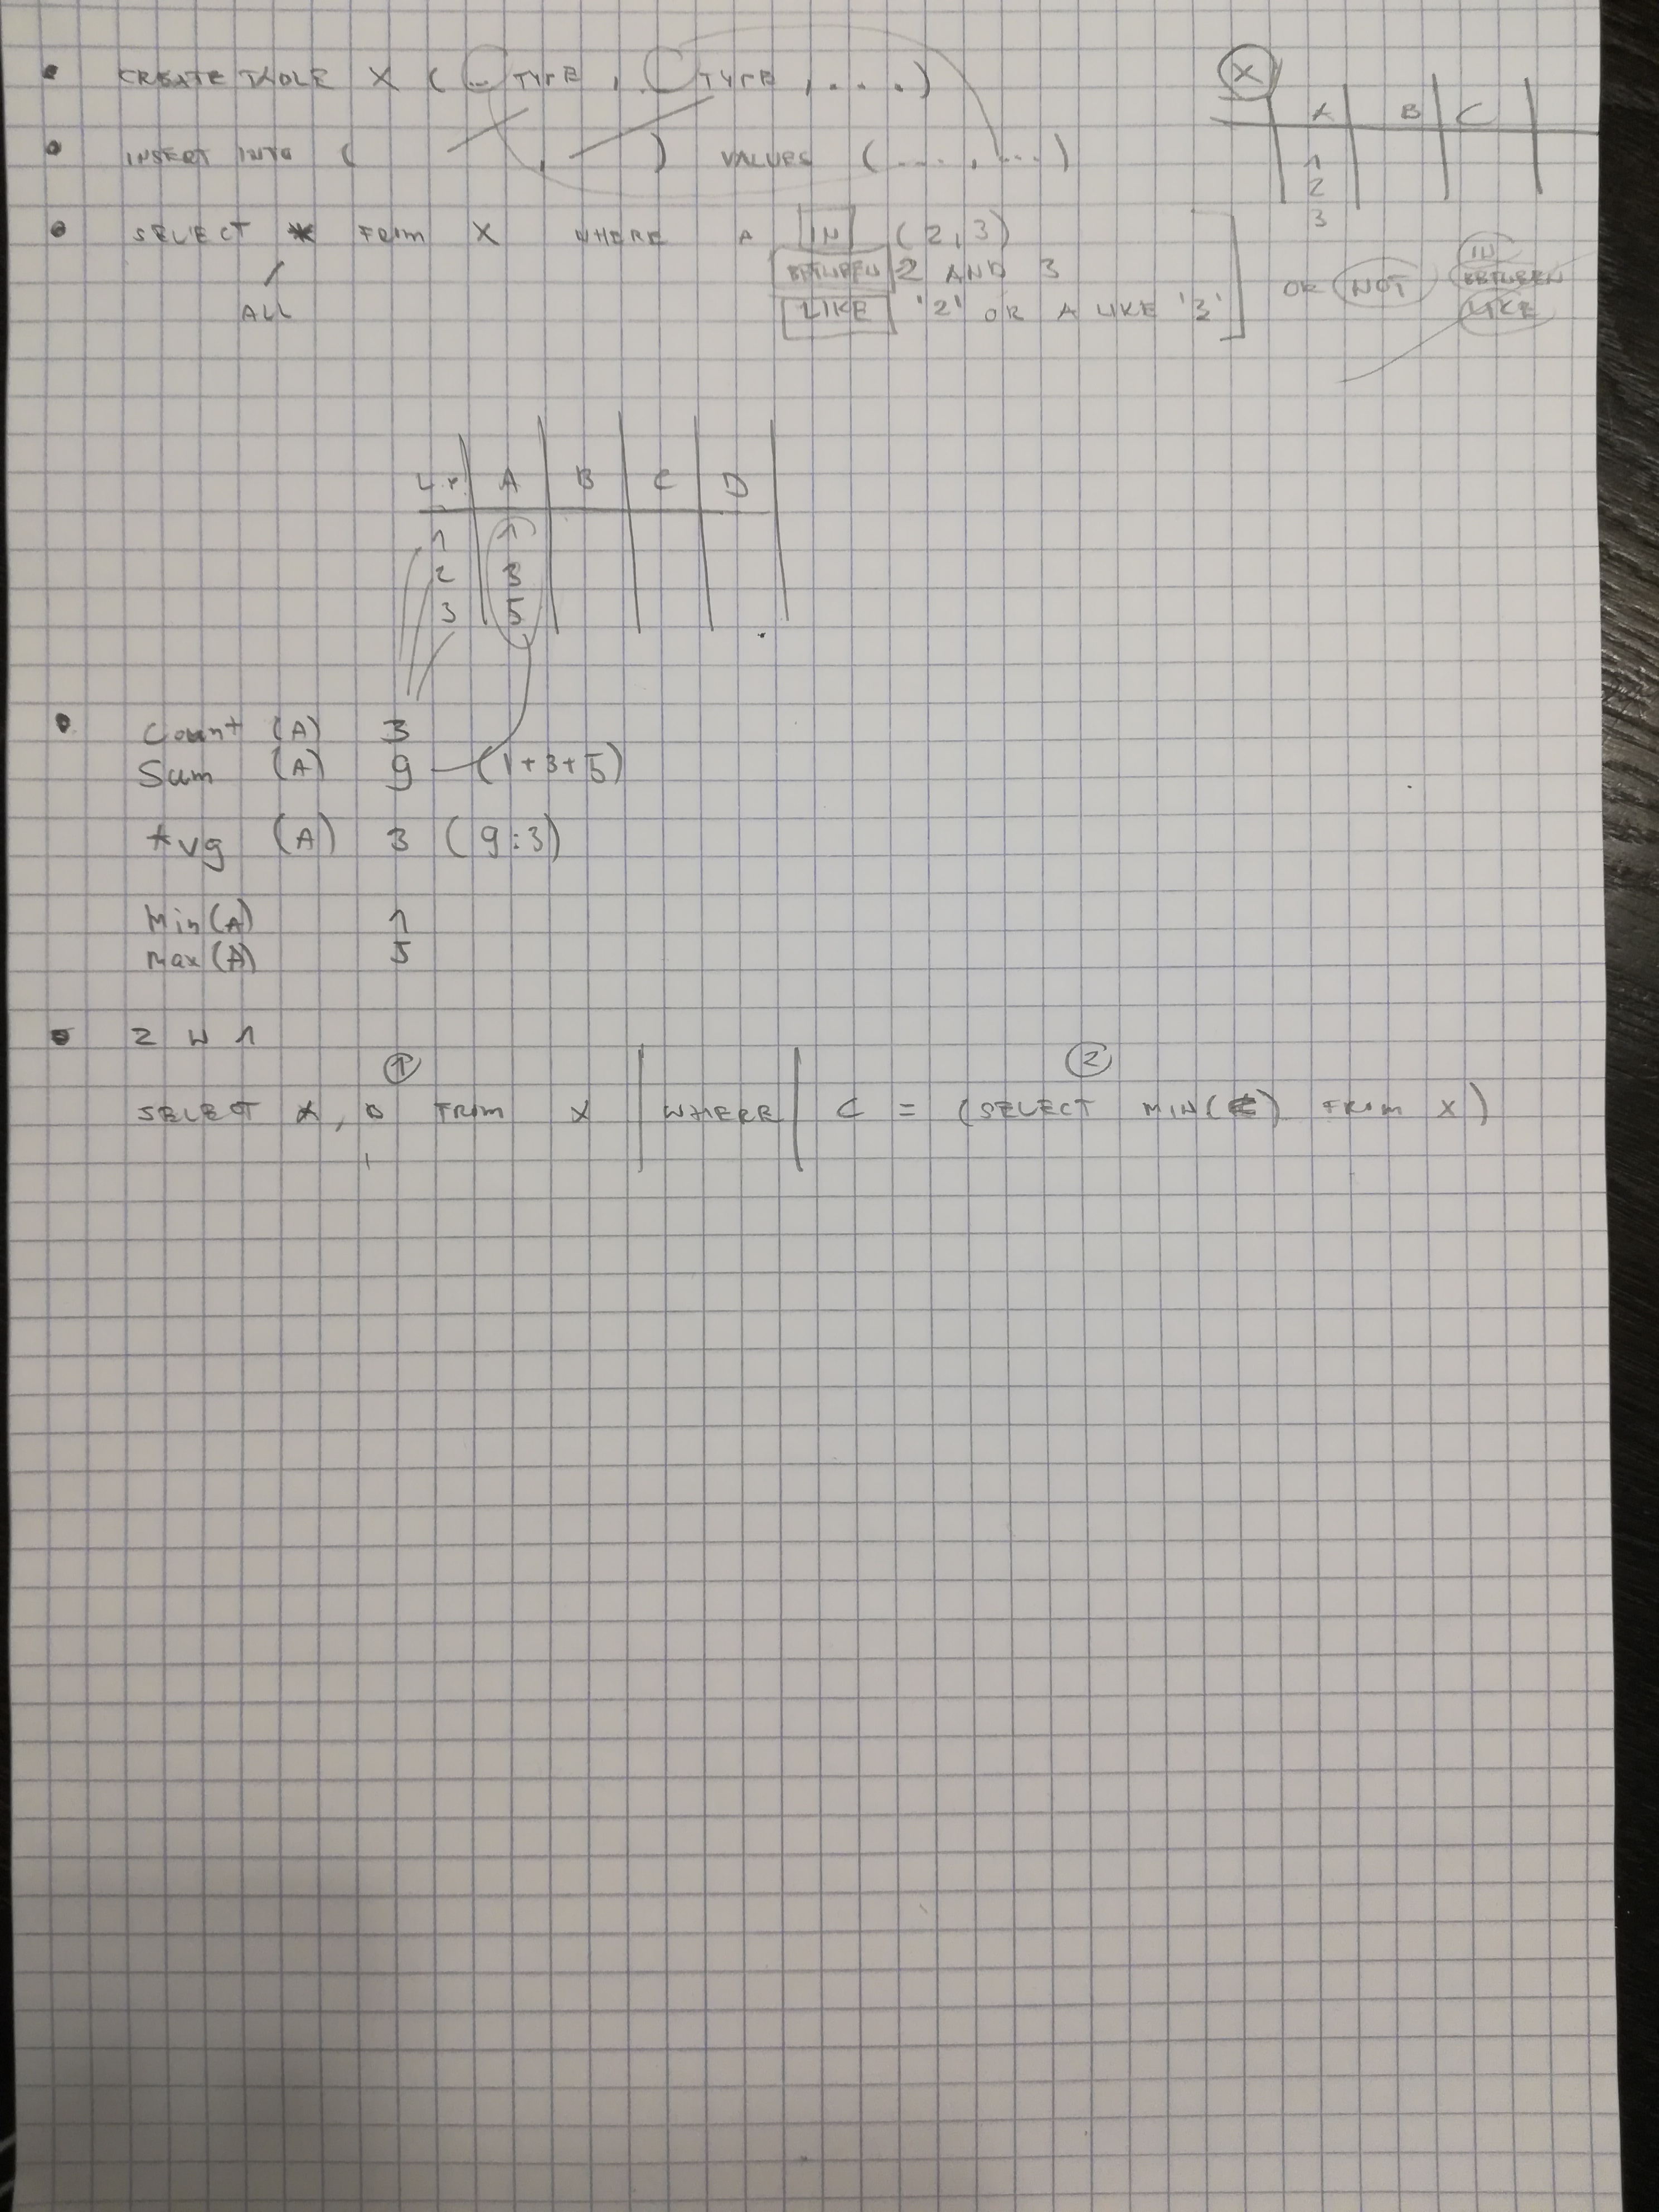 CREATE TABLE X ( ... TYPE , TYPE , .... )
X
A B C
1
2
3
INSERT INTO ( , ) VALUES (.... , ....)
SELECT * FROM X WHERE A IN (2,3)
BETWEEN 2 AND 3
LIKE '2' OR A LIKE '3'
OR NOT
IN
BETWEEN
LIKE
ALL
L.p. A B C D
1 1
2 3
3 5
Count (A) 3
Sum (A) 9 (1+3+5)
Avg (A) 3 (9:3)
Min(A) 1
Max(A) 5
2 W 1
1 2
SELECT A, B FROM X WHERE C = (SELECT MIN(C) FROM X)